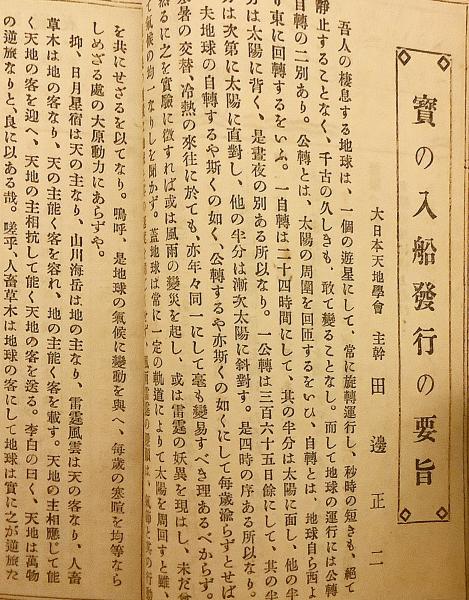 寳の入船發行の要旨
大日本天地學會 主幹 田邊正二
吾人の棲息する地球は、一個の遊星にして、常に旋轉運行し、秒時の短きも、絕て
靜止することなく、千古の久しきも、敢て變ることなし。而して地球の運行には公轉
自轉の二別あり。公轉とは、太陽の周圍を回匝するをいひ、自轉とは、地球自ら西よ
り東に回轉するをいふ。一自轉は二十四時間にして、其の半分は太陽に面し、他の半
分は太陽に背く、是晝夜の別ある所以なり。一公轉は三百六十五日餘にして、其の半
分は次第に太陽に直對し、他の半分は漸次太陽に斜對す。是四時の序ある所以なり。
夫地球の自轉するや斯くの如く、公轉するや亦斯くの如くにして每歲渝らずとせば
寒暑の交替、冷熱の來往に於ても、亦年々同一にして毫も變易すべき理あるべからず。
然るに之を實驗に徵すれば或は風雨の變災を起し、或は雷霆の妖異を現はし、未だ曾
て氣候の均一なりしを聞かず。蓋地球は常に一定の軌道によりて太陽を周回すと雖、
を共にせざるを以てなり。嗚呼、是地球の氣候に變動を與へ、每歲の寒暄を均等なら
しめざる處の大原動力にあらずや。
抑、日月星宿は天の主なり、山川海岳は地の主なり、雷霆風雲は天の客なり、人畜
草木は地の客なり、天の主能く客を容れ、地の主能く客を載す。天地の主相應じて能
く天地の客を迎へ、天地の主相抗して能く天地の客を送る。李白の曰く、天地は萬物
の逆旅なりと、良に以ある哉。嗟乎、人畜草木は地球の客にして地球は實に之が逆旅た